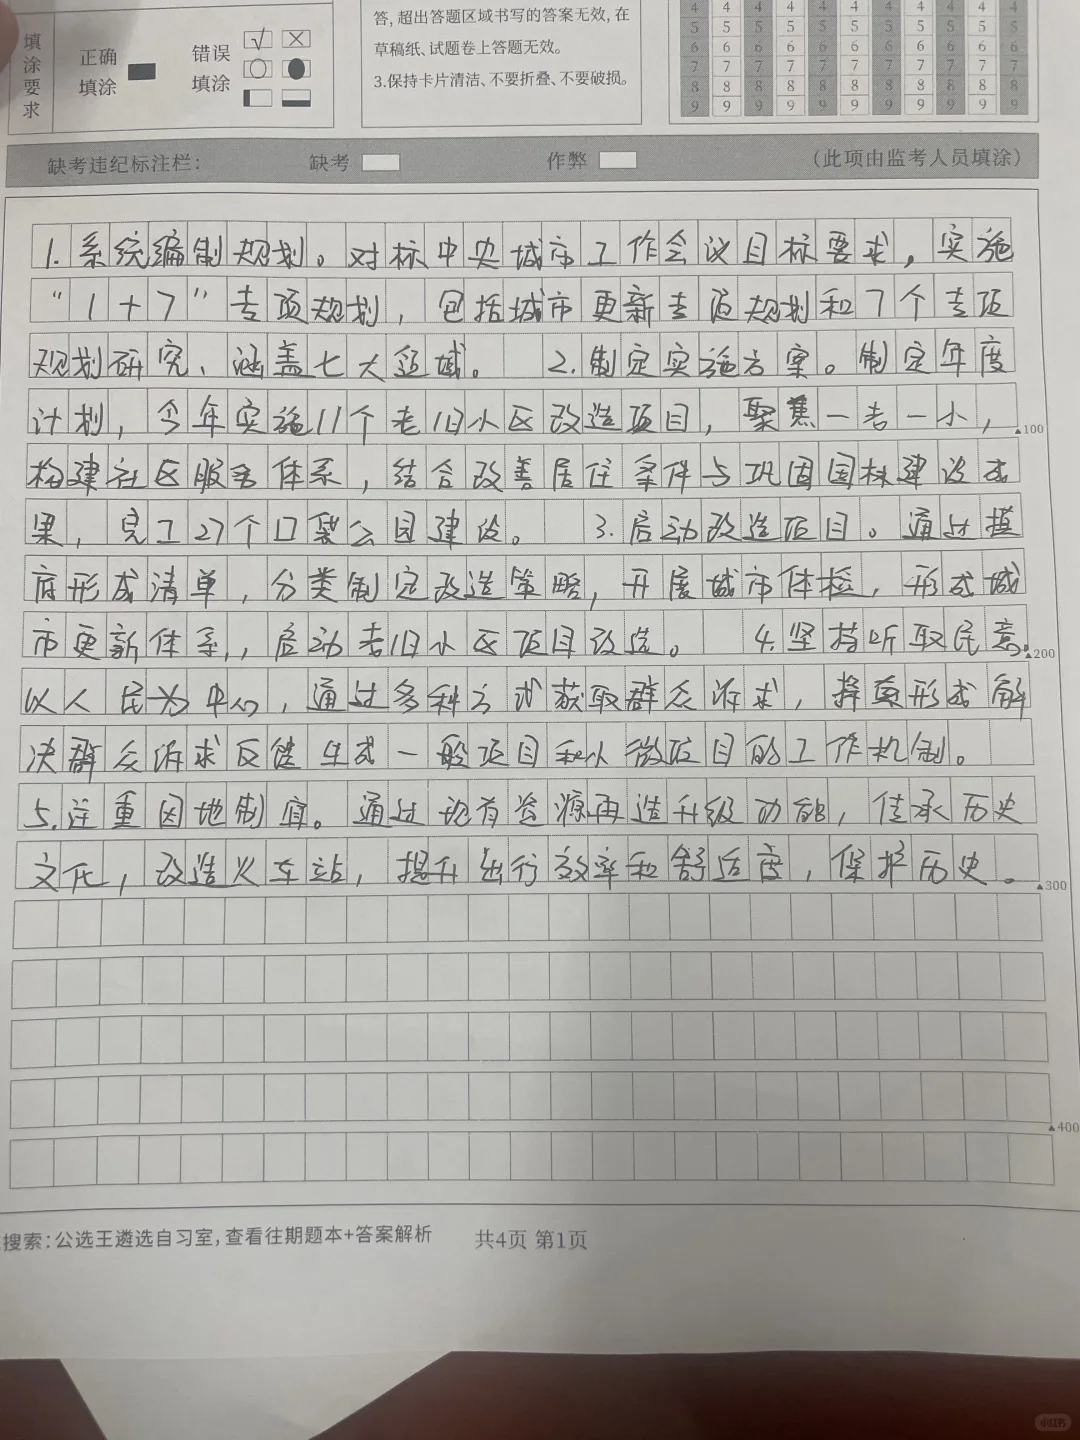 填涂要求
正确填涂
错误填涂
答，超出答题区域书写的答案无效，在
草稿纸、试题卷上答题无效。
3.保持卡片清洁、不要折叠、不要破损。
4 4 4 4 4 4 4 4 4 4 4
5 5 5 5 5 5 5 5 5 5 5
6 6 6 6 6 6 6 6 6 6 6
7 7 7 7 7 7 7 7 7 7 7
8 8 8 8 8 8 8 8 8 8 8
9 9 9 9 9 9 9 9 9 9 9
缺考违纪标注栏： 缺考 作弊 （此项由监考人员填涂）
1.系统编制规划。对标中央城市工作会议目标要求，实施
“1+7”专项规划，包括城市更新专项规划和7个专项
规划研究、涵盖七大领域。 2.制定实施方案。制定年度
计划，今年实施11个老旧小区改造项目，聚焦一老一小，
▲100
构建社区服务体系，结合改善居住条件与巩固园林建设成
果，完工27个口袋公园建设。 3.启动改造项目。通过摸
底形成清单，分类制定改造策略，开展城市体检，形成城
市更新体系，，启动老旧小区项目改造。 4.坚持听取民意。
▲200
以人民为中心，通过多种方式获取群众诉求，择真形成解
决群众诉求反馈生成一般项目和从微项目的工作机制。
5.注重因地制宜。通过现有资源再造升级功能，传承历史
文化，改造火车站，提升出行效率和舒适度，保护历史。
▲300
▲400
搜索：公选王遴选自习室，查看往期题本+答案解析
共4页 第1页
小红书